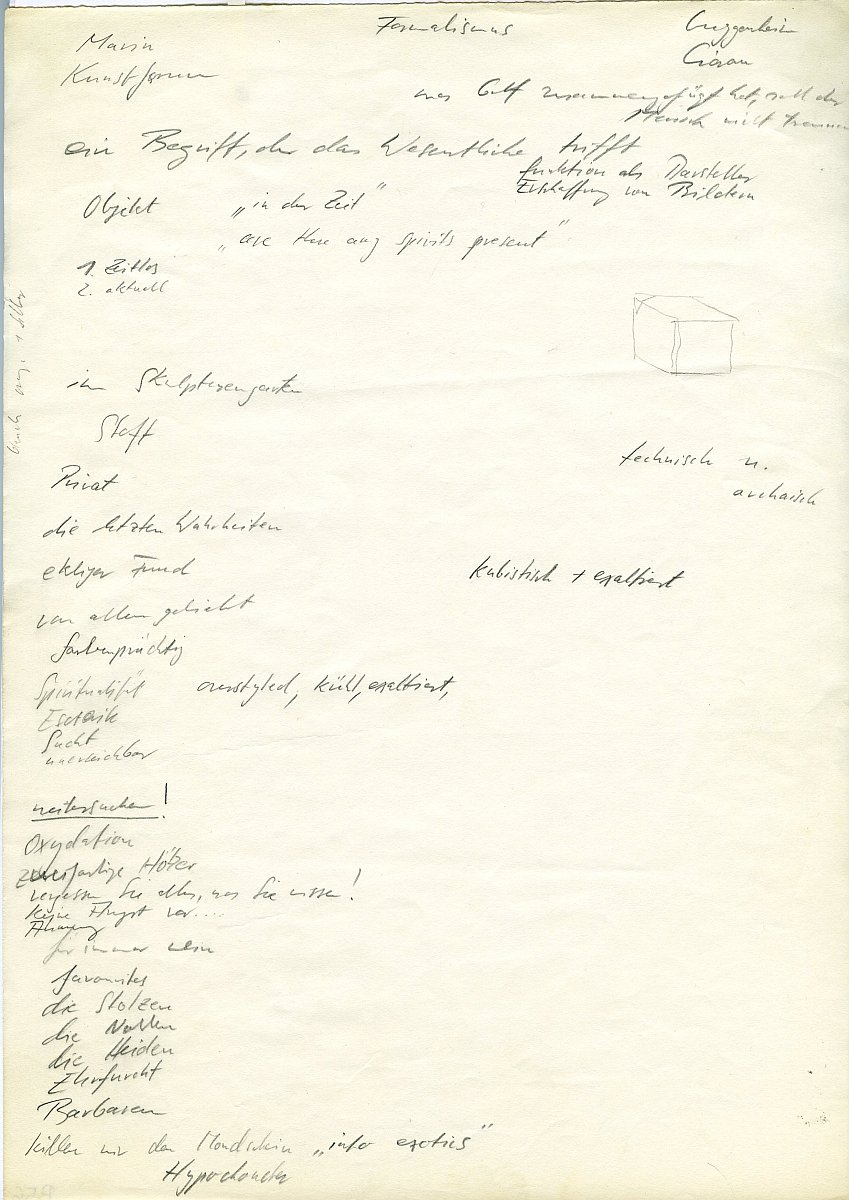 Formalismus
Guggenheim
Cioran
Marin
Kunstforum
was Gott zusammengefügt hat, soll der
Mensch nicht trennen
ein Begriff, der das Wesentliche trifft
funktion als Darsteller
Erschaffung von Bildern
Objekt „in der Zeit"
„are there any spirits present"
1. Zeitlos
2. aktuell
im Skulpturengarten
Stoff
technisch u.
archaisch
Privat
die letzten Wahrheiten
ekliger Fund
kubistisch + exaltiert
von allen geliebt
farbenprächtig
Spiritualität overstyled, kühl, exaltiert,
Esoterik
Sucht
unerreichbar
weitersuchen!
Oxydation
Hölzer
vergessen Sie alles, was Sie wissen!
keine Angst vor....
Ahnung
für immer
favourites
die Stolzen
die
die Heiden
Ehrfurcht
Barbaren
wir den Mondschein „into exotics"
Hypochonder